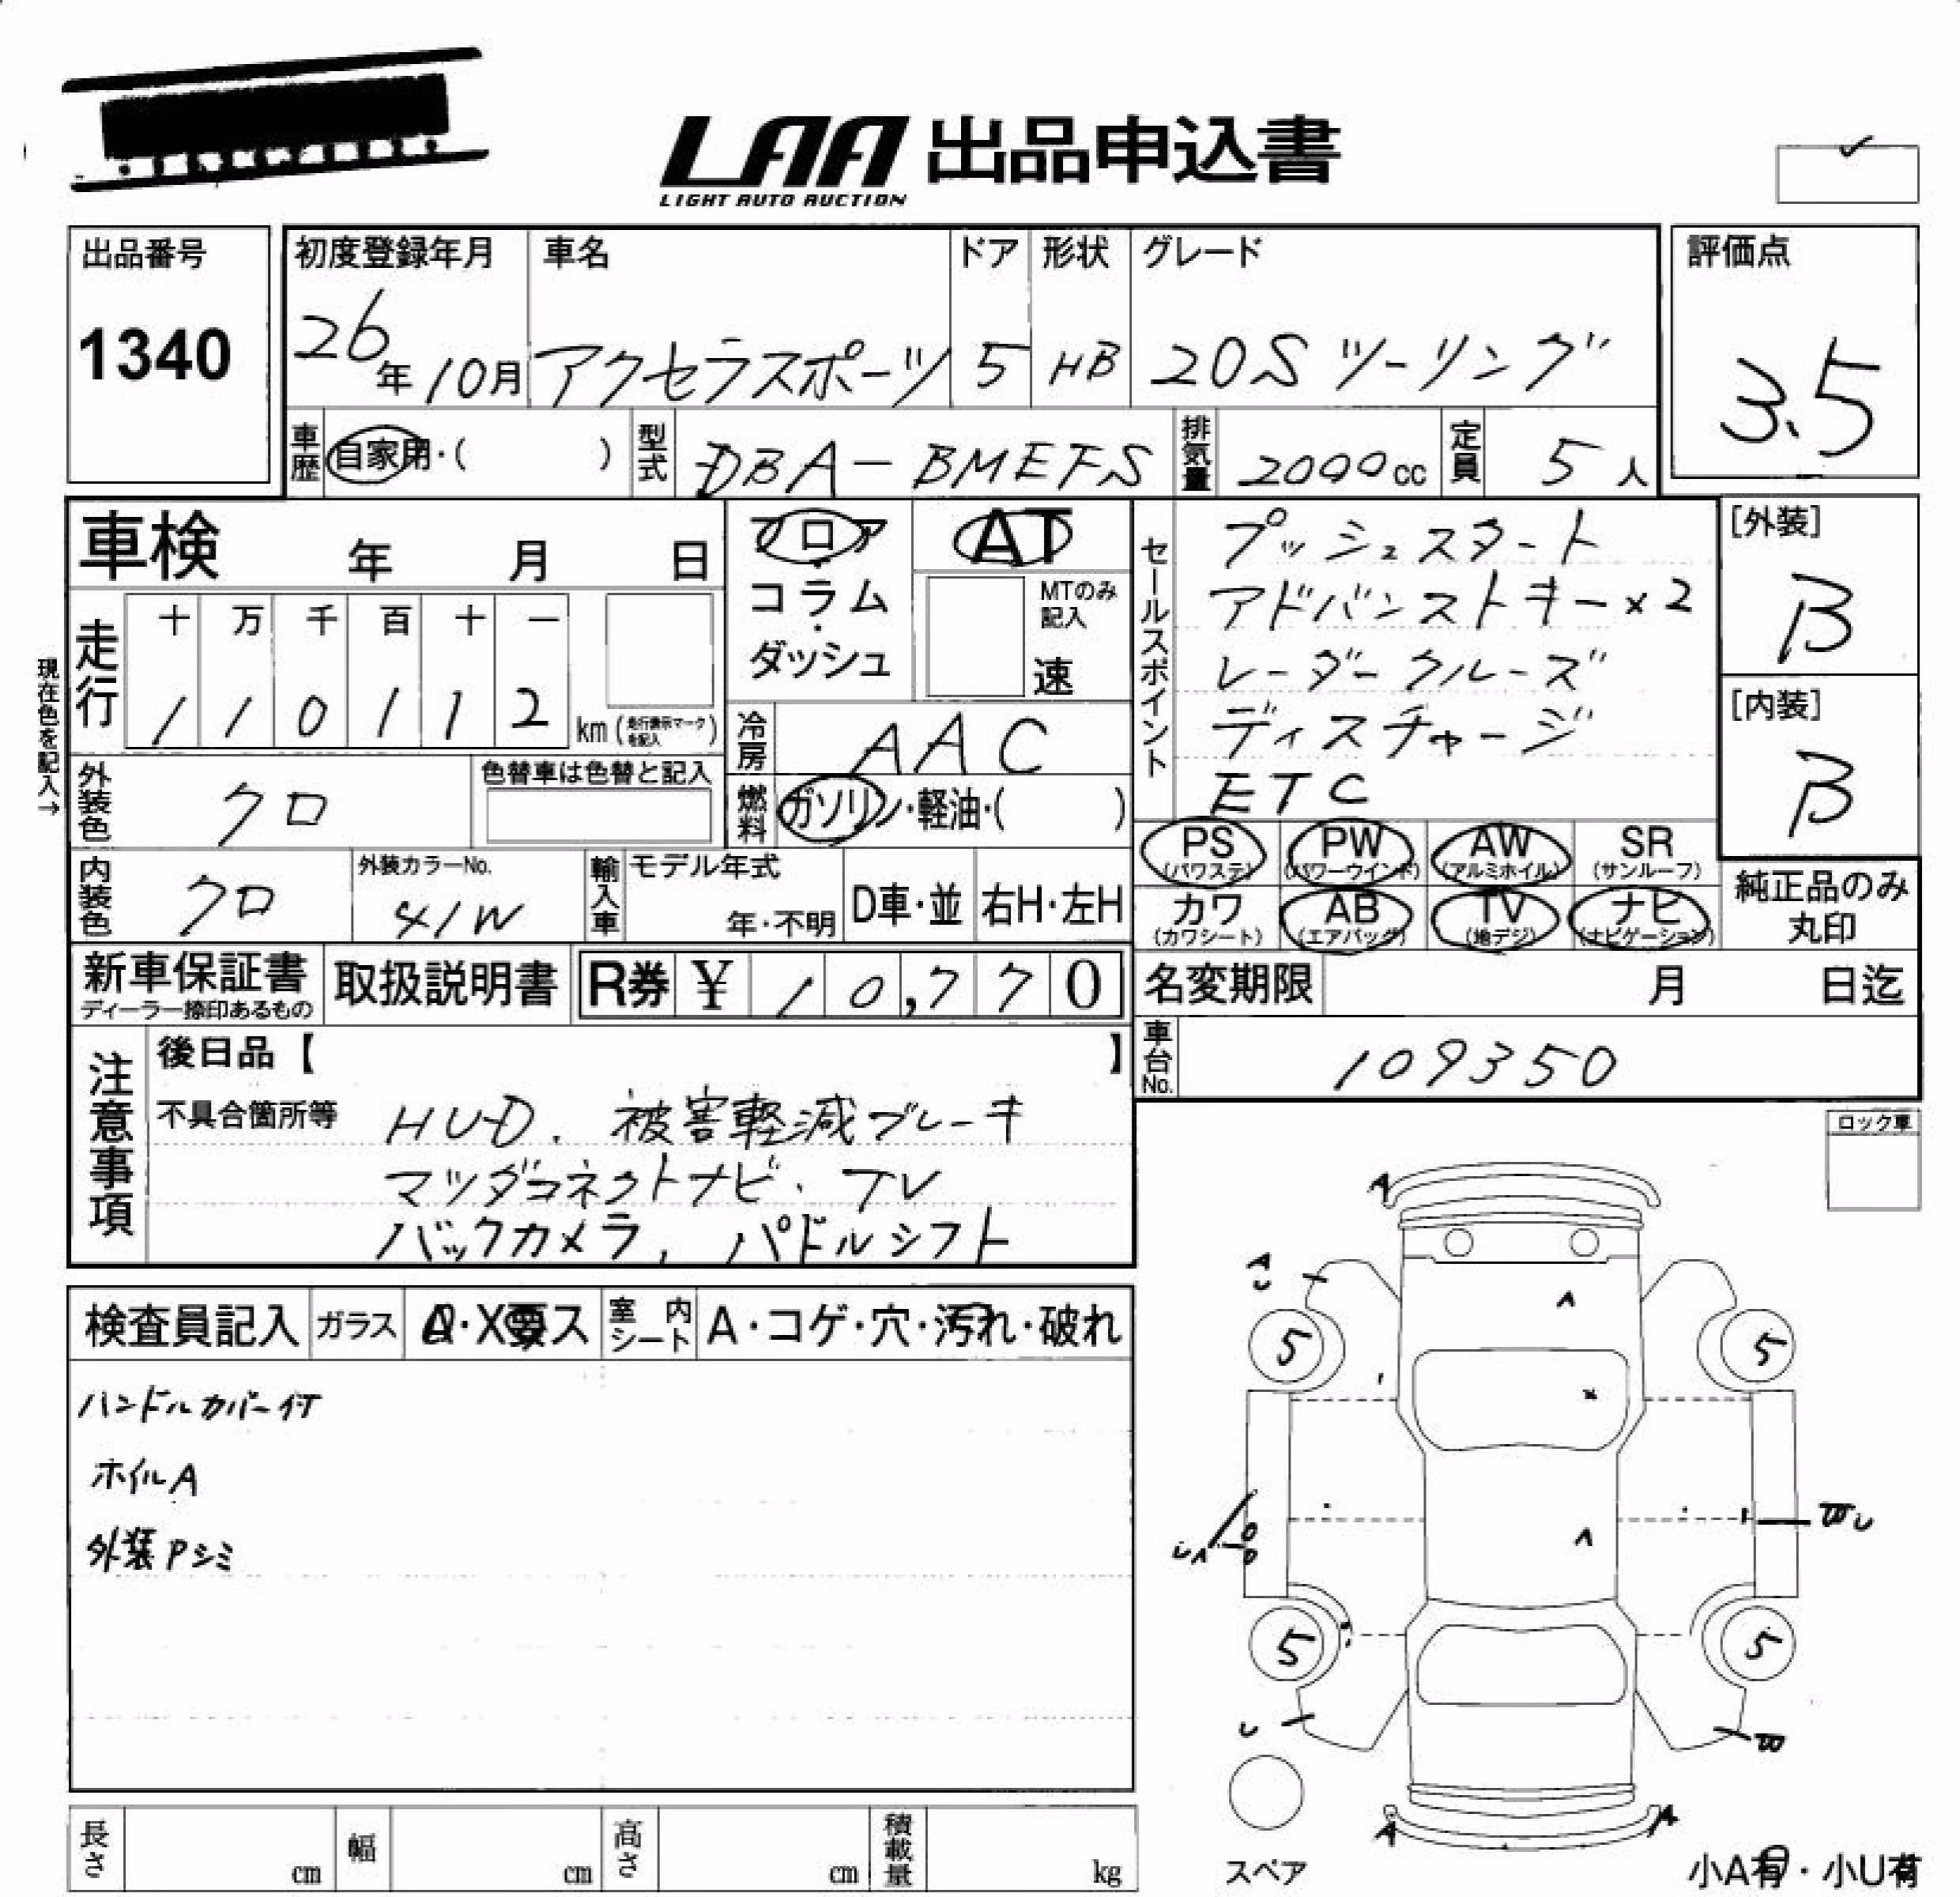 LAA 出品申込書
LIGHT AUTO AUCTION
出品番号
1340
初度登録年月
26年10月
車名
アクセラスポーツ
ドア
5
形状
HB
グレード
20S ツーリング
評価点
3.5
車歴 自家用・( )
型式 DBA-BMEFS
排気量 2000cc
定員 5人
車検 年 月 日
フロア・コラム・ダッシュ
AT
MTのみ記入
速
セールスポイント
プッシュスタート
アドバンストキー×2
レーダークルーズ
ディスチャージ
ETC
[外装]
B
[内装]
B
現在色を記入→
走行
十 万 千 百 十 一
1 1 0 1 1 2 km (走行表示マークを記入)
冷房 AAC
外装色 クロ
色替車は色替と記入
燃料 ガソリン・軽油・( )
PS (パワステ) PW (パワーウインド) AW (アルミホイル) SR (サンルーフ)
カワ (カワシート) AB (エアバッグ) TV (地デジ) ナビ (ナビゲーション)
純正品のみ丸印
内装色 クロ
外装カラーNo.
41W
輸入車 モデル年式
年・不明
D車・並 右H・左H
新車保証書
ディーラー捺印あるもの
取扱説明書
R券 ¥ 10,770
名変期限 月 日迄
車台No. 109350
注意事項
後日品【 】
不具合箇所等 HUD. 被害軽減ブレーキ
マツダコネクトナビ・TV
バックカメラ, パドルシフト
ロック車
検査員記入 ガラス ・X要ス 室内シート A・コゲ・穴・汚れ・破れ
ハンドルカバー付
ホイルA
外装Pシミ
A
A
U
A
5 5
×
U A
B U
A
5 5
U
B
A A
スペア
小A有・小U有
長さ cm 幅 cm 高さ cm 積載量 kg